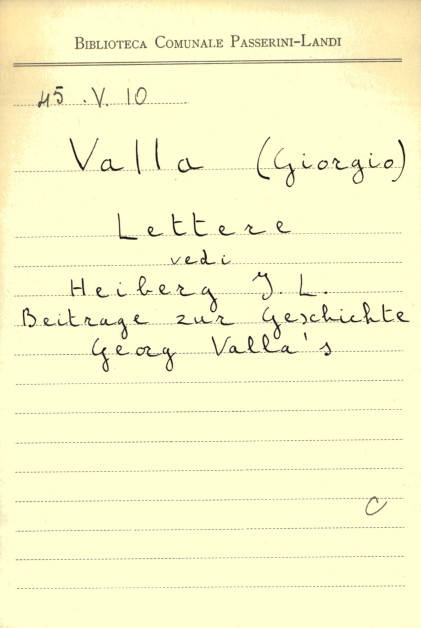 BIBLIOTECA COMUNALE PASSERINI-LANDI
45.V.10
Valla (Giorgio)
Lettere
vedi
Heiberg J. L.
Beitrage zur Geschichte
Georg Valla's
C